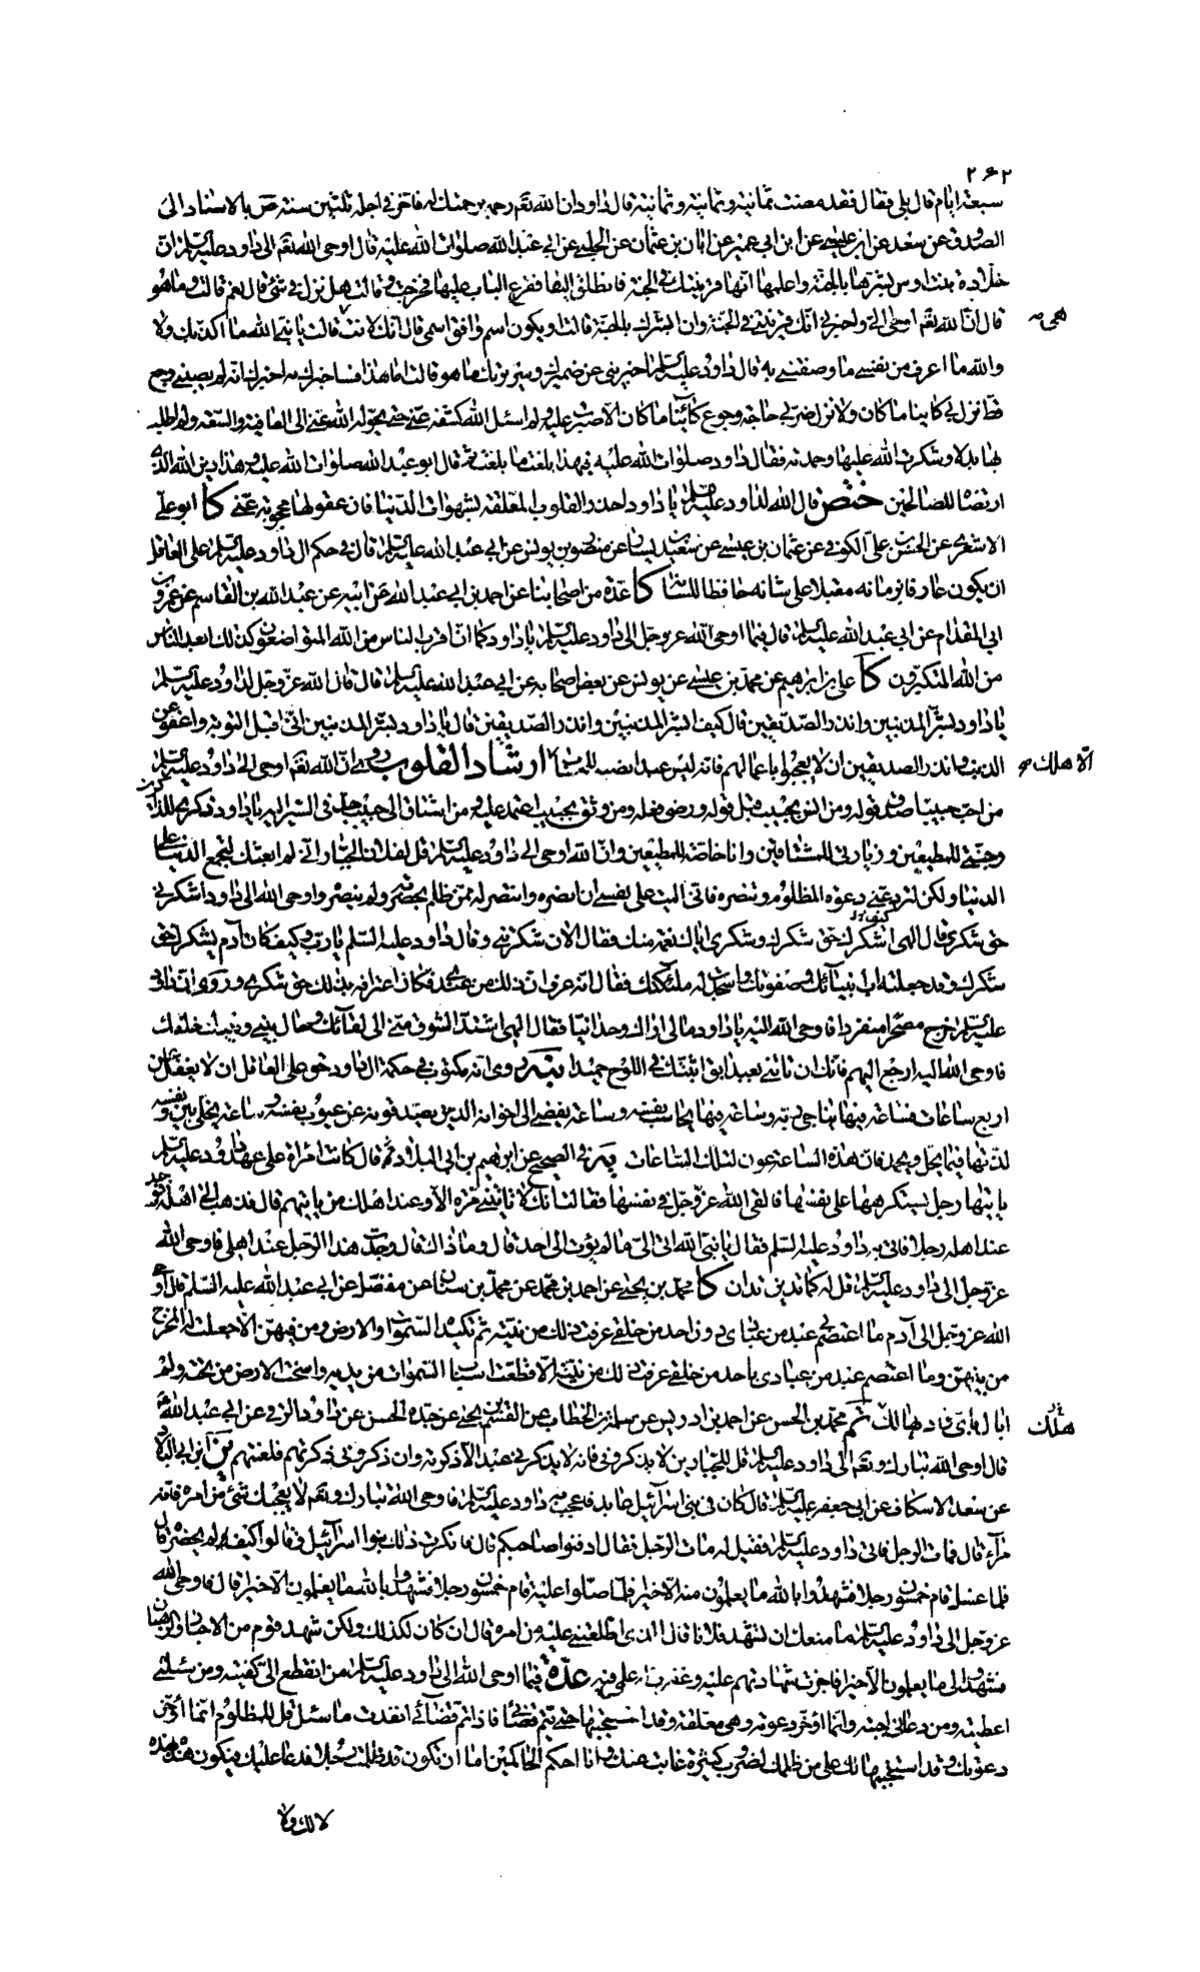 ٢٦٢
سبعة ايام قال بلى فقال فقد مضت ثمانية وثمانية وثمانية قال داود ان الله تعم رحمه برحمتك له فاخر في اجله ثلثين سنة ص بالاسناد الى
الصدوق عن سعد عن ابن عيسى عن ابن ابي عمير عن ابان بن عثمان عن الحلبي عن ابي عبد الله صلوات الله عليه قال اوحى الله تعم الى داود عليه السلم ان
خلادة بنت اوس بشرها بالجنة واعلمها انها قرينتك في الجنة فانطلق اليها فقرع الباب عليها فخرجت وقالت هل نزل في شئ قال نعم قالت وما هو
قال ان الله تعم اوحى الي واخبرني انك قرينتي في الجنة وان ابشرك بالجنة قالت او يكون اسم وافق اسمي قال انك لانت هي صح قالت يا نبي الله ما اكذبك ولا
والله ما اعرف من نفسي ما وصفتني به قال داود عليه السلم اخبريني عن ضميرك وسريرتك ما هو قالت اما هذا فساخبرك به اخبرك انه لم يصبني وجع
قط نزل بي كاينا ما كان ولا نزل ضر بي حاجة وجوع كائنا ما كان الا صبرت عليه ولم اسئل الله كشفه عني حتى يحوله الله عني الى العافية والسعة ولم اطلب
بها بدلا وشكرت الله عليها وحمدته فقال داود صلوات الله عليه فبهذا بلغت ما بلغت ثم قال ابو عبد الله صلوات الله عليه وهذا دين الله الذي
ارتضاه للصالحين ختص قال الله لداود عليه السلم يا داود احذر القلوب المعلقة بشهوات الدنيا فان عقولها محجوبة عني كا ابو علي
الاشعري عن الحسن بن علي الكوفي عن عثمان بن عيسى عن سعيد بن يسار عن منصور بن يونس عن ابي عبد الله عليه السلم قال في حكم ال داود عليه السلم على العاقل
ان يكون عارفا بزمانه مقبلا على شانه حافظا للسانه كا عدة من اصحابنا عن احمد بن ابي عبد الله عن ابيه عن عبد الله بن القاسم عن عمرو بن
ابي المقدام عن ابي عبد الله عليه السلم قال فيما اوحى الله عز وجل الى داود عليه السلم يا داود كما ان اقرب الناس من الله المتواضعون كذلك ابعد الناس
من الله المتكبرون كا علي بن ابراهيم عن محمد بن عيسى عن يونس عن بعض اصحابه عن ابي عبد الله عليه السلم قال قال الله عز وجل لداود عليه السلم
يا داود بشر المذنبين وانذر الصديقين قال كيف ابشر المذنبين وانذر الصديقين قال يا داود بشر المذنبين اني اقبل التوبة واعفو عن
الذنب وانذر الصديقين ان لا يعجبوا باعمالهم فانه ليس عبد انصبه للحساب الا هلك صح ارشاد القلوب روي ان الله تعم اوحى الى داود عليه السلم
من احب حبيبا صدق قوله ومن انس بحبيب قبل قوله ورضي فعله ومن وثق بحبيب اعتمد عليه ومن اشتاق الى حبيب جد في السير اليه يا داود ذكري للذاكرين
وجنتي للمطيعين وزيارتي للمشتاقين وانا خاصة للمطيعين وان الله اوحى الى داود عليه السلم قل لفلان الجبار اني لم ابعثك لتجمع الدنيا على
الدنيا ولكن لترد عني دعوة المظلوم وتنصره فاني اليت على نفسي ان انصره وانتصر له ممن ظلم بحضرته ولم ينصره واوحى الله الى داود اشكرني
حق شكري قال الهي كيف اشكرك حق شكرك وشكري اياك نعمة منك فقال الان شكرتني وقال داود عليه السلم يا رب وكيف كان آدم يشكرك حق
شكرك وقد جعلته اب انبيائك وصفوتك واسجدت له ملئكتك فقال انه عرف ان ذلك من عندي فكان اعترافه بذلك حق شكري وروي ان داود
عليه السلم خرج مصحرا منفردا فاوحى الله اليه يا داود ما لي اراك وحدانيا فقال الهي اشتد الشوق مني الى لقائك وحال بيني وبينك خلقك
فاوحى الله اليه ارجع اليهم فانك ان تاتني بعبد ابق اثبتك في اللوح حميدا روي انه مكتوب في حكمة ال داود حق على العاقل ان لا يغفل عن
اربع ساعات فساعة فيها يناجي ربه وساعة فيها يحاسب نفسه وساعة يفضي الى اخوانه الذين يصدقونه عن عيوب نفسه وساعة يخلي بين نفسه و
لذتها فيما يحل ويحمد فان هذه الساعة عون لتلك الساعات يه في الصحيح عن ابراهيم بن ابي البلاد قال كانت امراة على عهد داود عليه السلم
ياتيها رجل يستكرهها على نفسها فالقى الله عز وجل في نفسها فقالت انك لا تاتيني مرة الا وعند اهلك من ياتيهم قال فذهب الى اهله فوجد
عند اهله رجلا فاتى به داود عليه السلم فقال يا نبي الله اتي الي ما لم يؤت الى احد قال وما ذاك قال وجدت هذا الرجل عند اهلي فاوحى الله
عز وجل الى داود عليه السلم قل له كما تدين تدان كا محمد بن يحيى عن احمد بن محمد عن محمد بن سنان عن مفضل عن ابي عبد الله عليه السلم قال اوحى
الله عز وجل الى آدم ما اعتصم بي عبد من عبادي دون احد من خلقي عرفت ذلك من نيته ثم تكيده السموات والارض ومن فيهن الا جعلت له المخرج
من بينهن وما اعتصم عبد من عبادي باحد من خلقي عرفت ذلك من نيته الا قطعت اسباب السموات من يديه واسخت الارض من تحته ولم
ابال باي واد هالك هلك محمد بن الحسن عن احمد بن ادريس عن سلمة بن الخطاب عن القسم بن يحيى عن جده الحسن عن داود الرقي عن ابي عبد الله
قال اوحى الله تبارك وتعم الى داود عليه السلم قل للجبارين لا يذكروني فانه لا يذكرني عبد الا ذكرته وان ذكروني ذكرتهم فلعنتهم ابن ابي البلاد
عن سعد الاسكاف عن ابي جعفر عليه السلم قال كان في بني اسرائيل عابد فاعجب به داود عليه السلم فاوحى الله تبارك وتعم لا يعجبك شئ من امره فانه
مراء قال فمات الرجل فاتى داود عليه السلم فقيل له مات الرجل فقال ادفنوا صاحبكم قال فانكرت ذلك بنوا اسرائيل وقالوا كيف لم يحضره قال
فلما غسل قام خمسون رجلا فشهدوا بالله ما يعلمون منه الا خيرا فلما صلوا عليه قام خمسون رجلا فشهدوا بالله ما يعلمون الا خيرا قال فاوحى الله
عز وجل الى داود عليه السلم ما منعك ان تشهد فلانا قال الذي اطلعتني عليه من امره قال ان كان لكذلك ولكن شهده قوم من الاحبار والرهبان
فشهدوا لي ما يعلمون الا خيرا فاجزت شهادتهم عليه وغفرت له علمي فيه عدة فيما اوحى الله الى داود عليه السلم من انقطع الي كفيته ومن سئلني
اعطيته ومن دعاني اجبته وانما اؤخر دعوته وهي معلقة وقد استجبتها حتى يتم قضائي فاذا تم قضائي انفذت ما سئل قل للمظلوم انما اؤخر
دعوتك وقد استجبتها لك على من ظلمك لضروب كثيرة غابت عنك وانا احكم الحاكمين اما ان تكون قد ظلمت رجلا فدعا عليك فتكون هذه بهذه
لا لك ولا